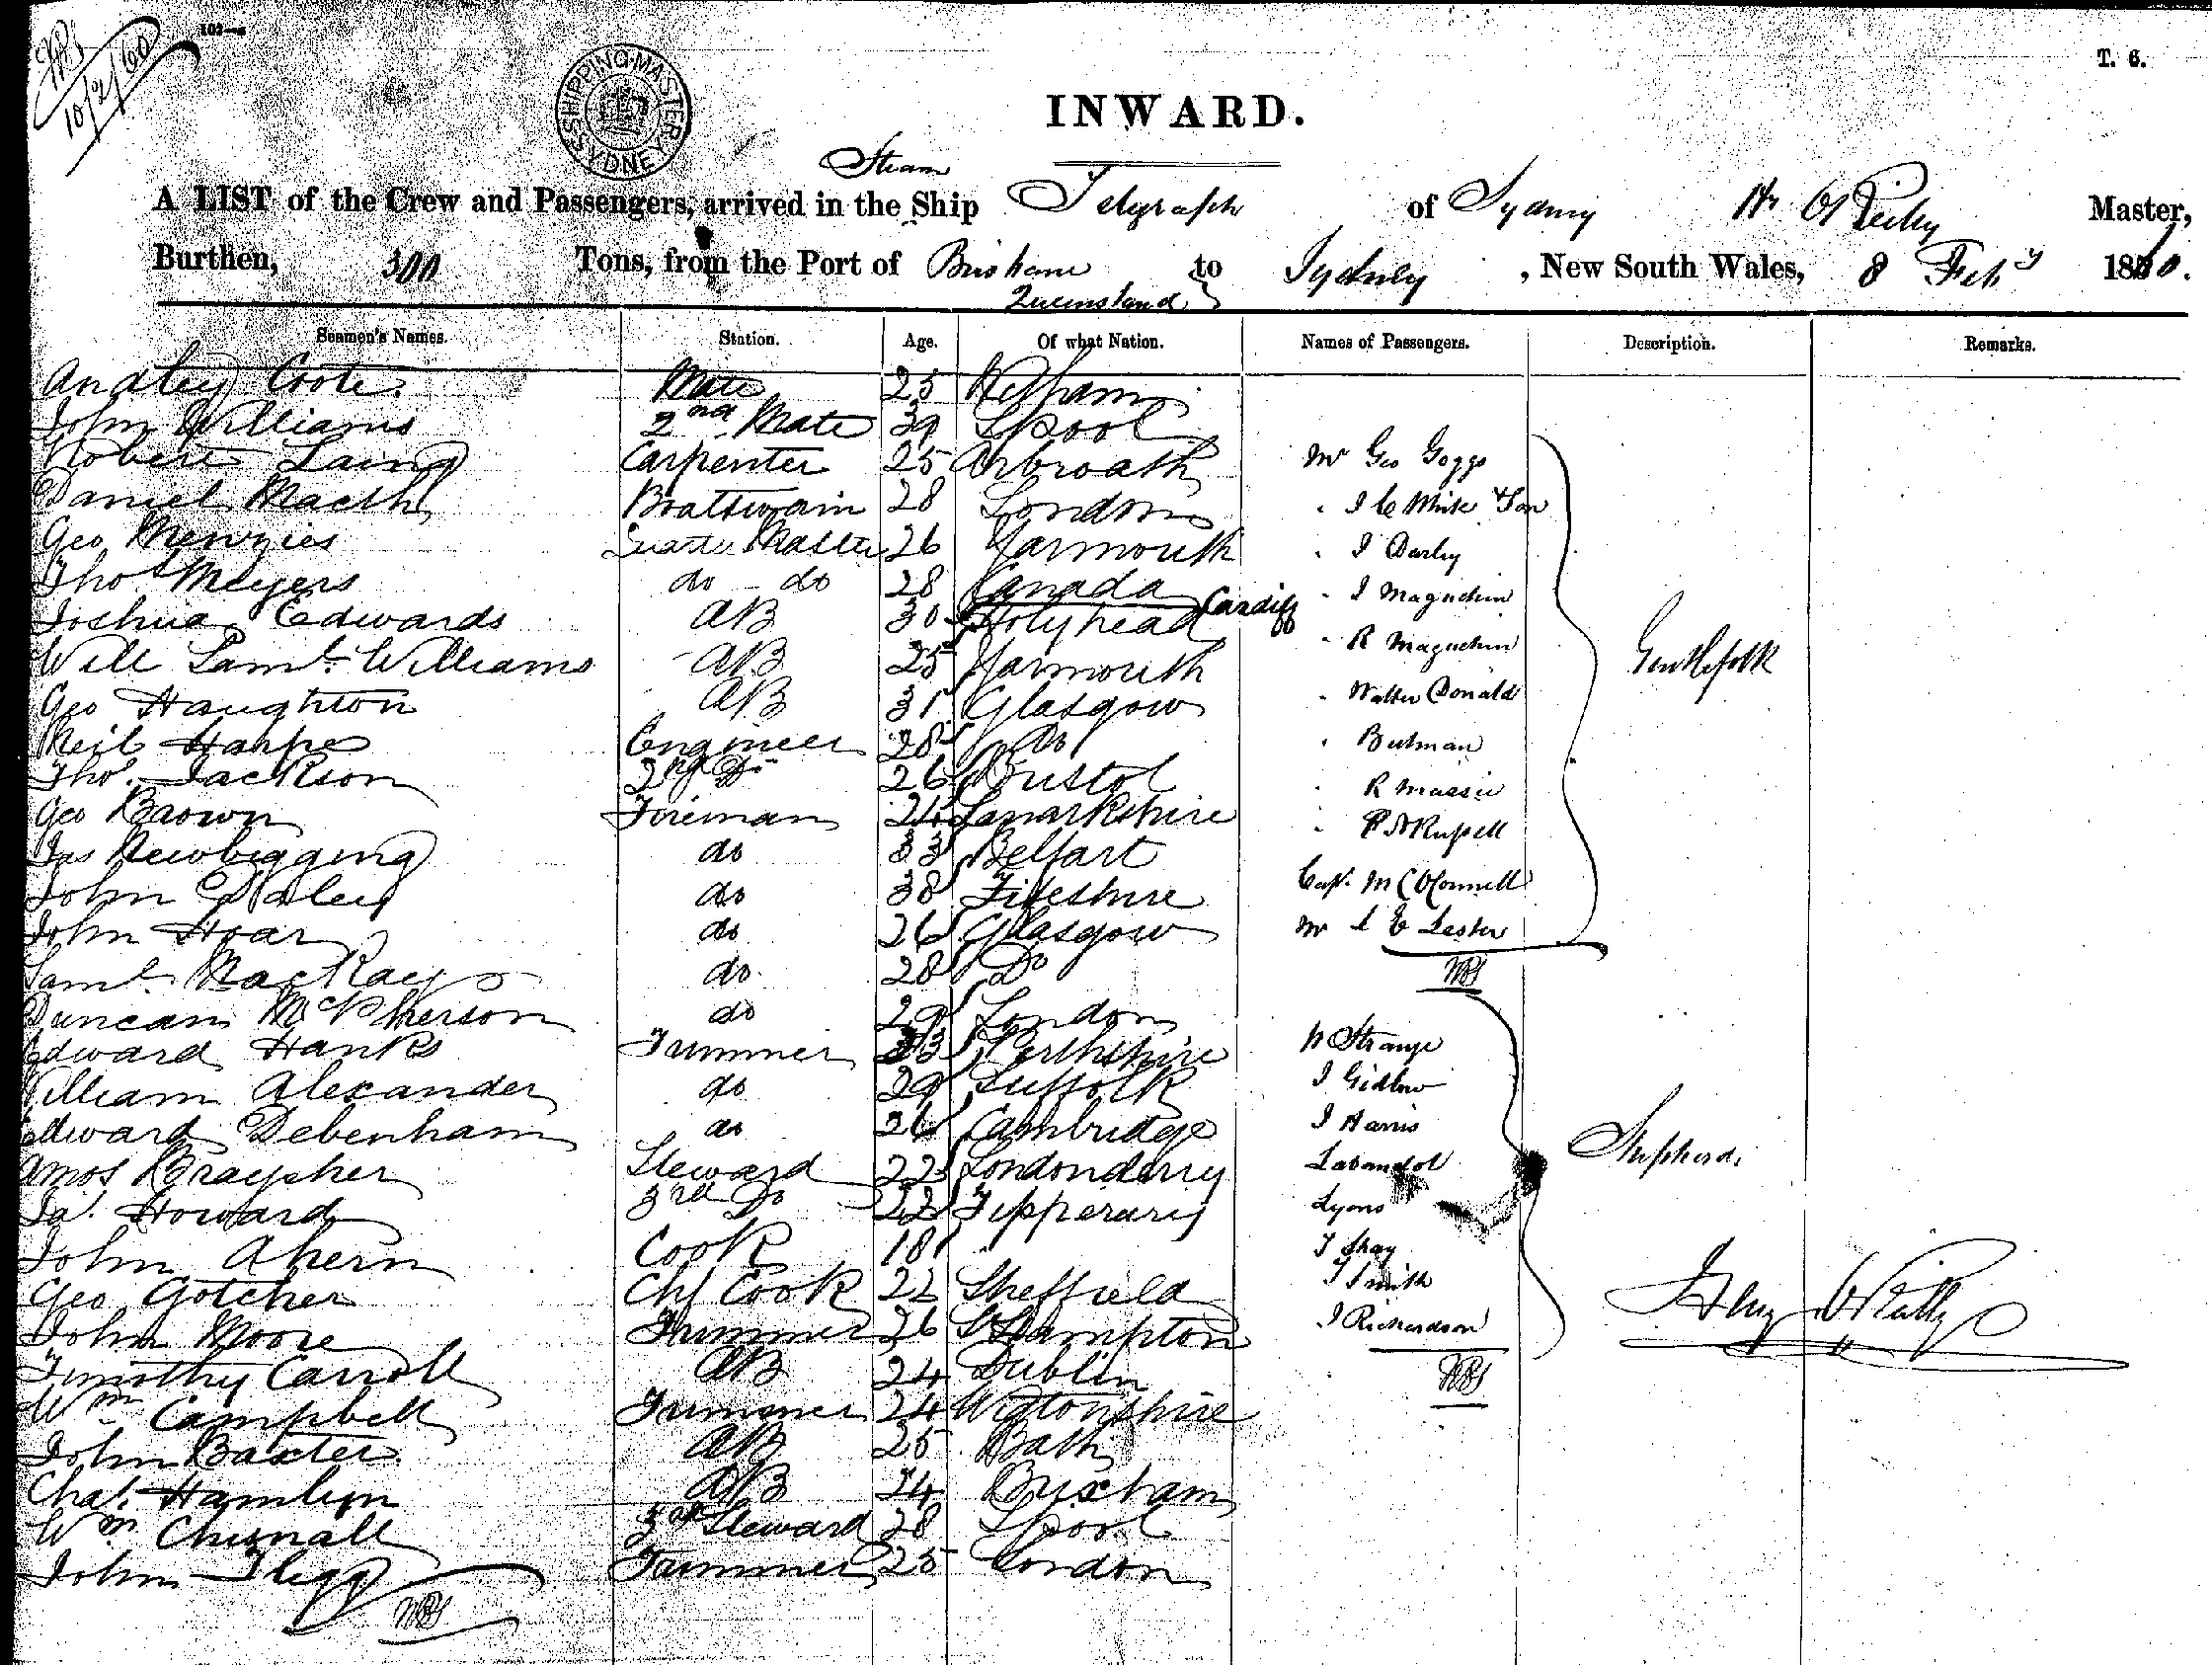 10/2/60
102—a
SHIPPING MASTER SYDNEY
T. 6.
INWARD.
Steam
A LIST of the Crew and Passengers, arrived in the Ship Telegraph of Sydney H O'Reilly Master,
Burthen, 300 Tons, from the Port of Brisbane Queensland to Sydney, New South Wales, 8 Feby 1860.
Seamen's Names. Station. Age. Of what Nation. Names of Passengers. Description. Remarks.
Audley Coote Mate 25
John Williams 2nd Mate 39 L'pool
Robert Laing Carpenter 25 Arbroath Mr Geo Goggs
Daniel Boatswain 28 London " J C White & Son
Geo Menzies Quarter Master 26 Yarmouth " J Darby
Thos Meyers do - do 28 Canada " J
Joshua Edwards AB 30 Holyhead Cardiff
Will Saml. Williams AB 25 Yarmouth " R
Geo Haughton AB 31 Glasgow " Walter Donald
Neil Harper Engineer 28 Do
Thos. Jackson 2nd Do 26 Bristol " R Massie
Geo Brown Fireman 24 Lanarkshire " Russell
Jas Newbigging do 33 Belfast
John do 38 Fifeshire Capt. M C O'Connell
John Hoar do 26 Glasgow Mr L E Lester
Gentlefolk
Saml. MacKay do 28 Do
Duncan McPherson do 29 London
Edward Hanks Trimmer 33 Perthshire Strange
William Alexander do 29 Suffolk J Gidlow
Edward Debenham do 26 Cambridge J Harris
Amos Braysher Steward 22 Londonderry
Ja. Howard 3rd Do 22 Tipperary Lyons
John Ahern Cook 18 " T Shay
Geo Gotcher Chf Cook 22 Sheffield J Smith
John Moore Trimmer 26 S'Hampton J Richardson
Shepherds
Henry O'Reilly
Timothy Carroll AB 24 Dublin
Wm Campbell Trimmer 24 Wigtonshire
John Baxter AB 25 Bath
Chas. Hamlyn AB 24 Brixham
Wm Chisnall 3rd Steward 28 L'pool
John Flegg Trimmer 25 London